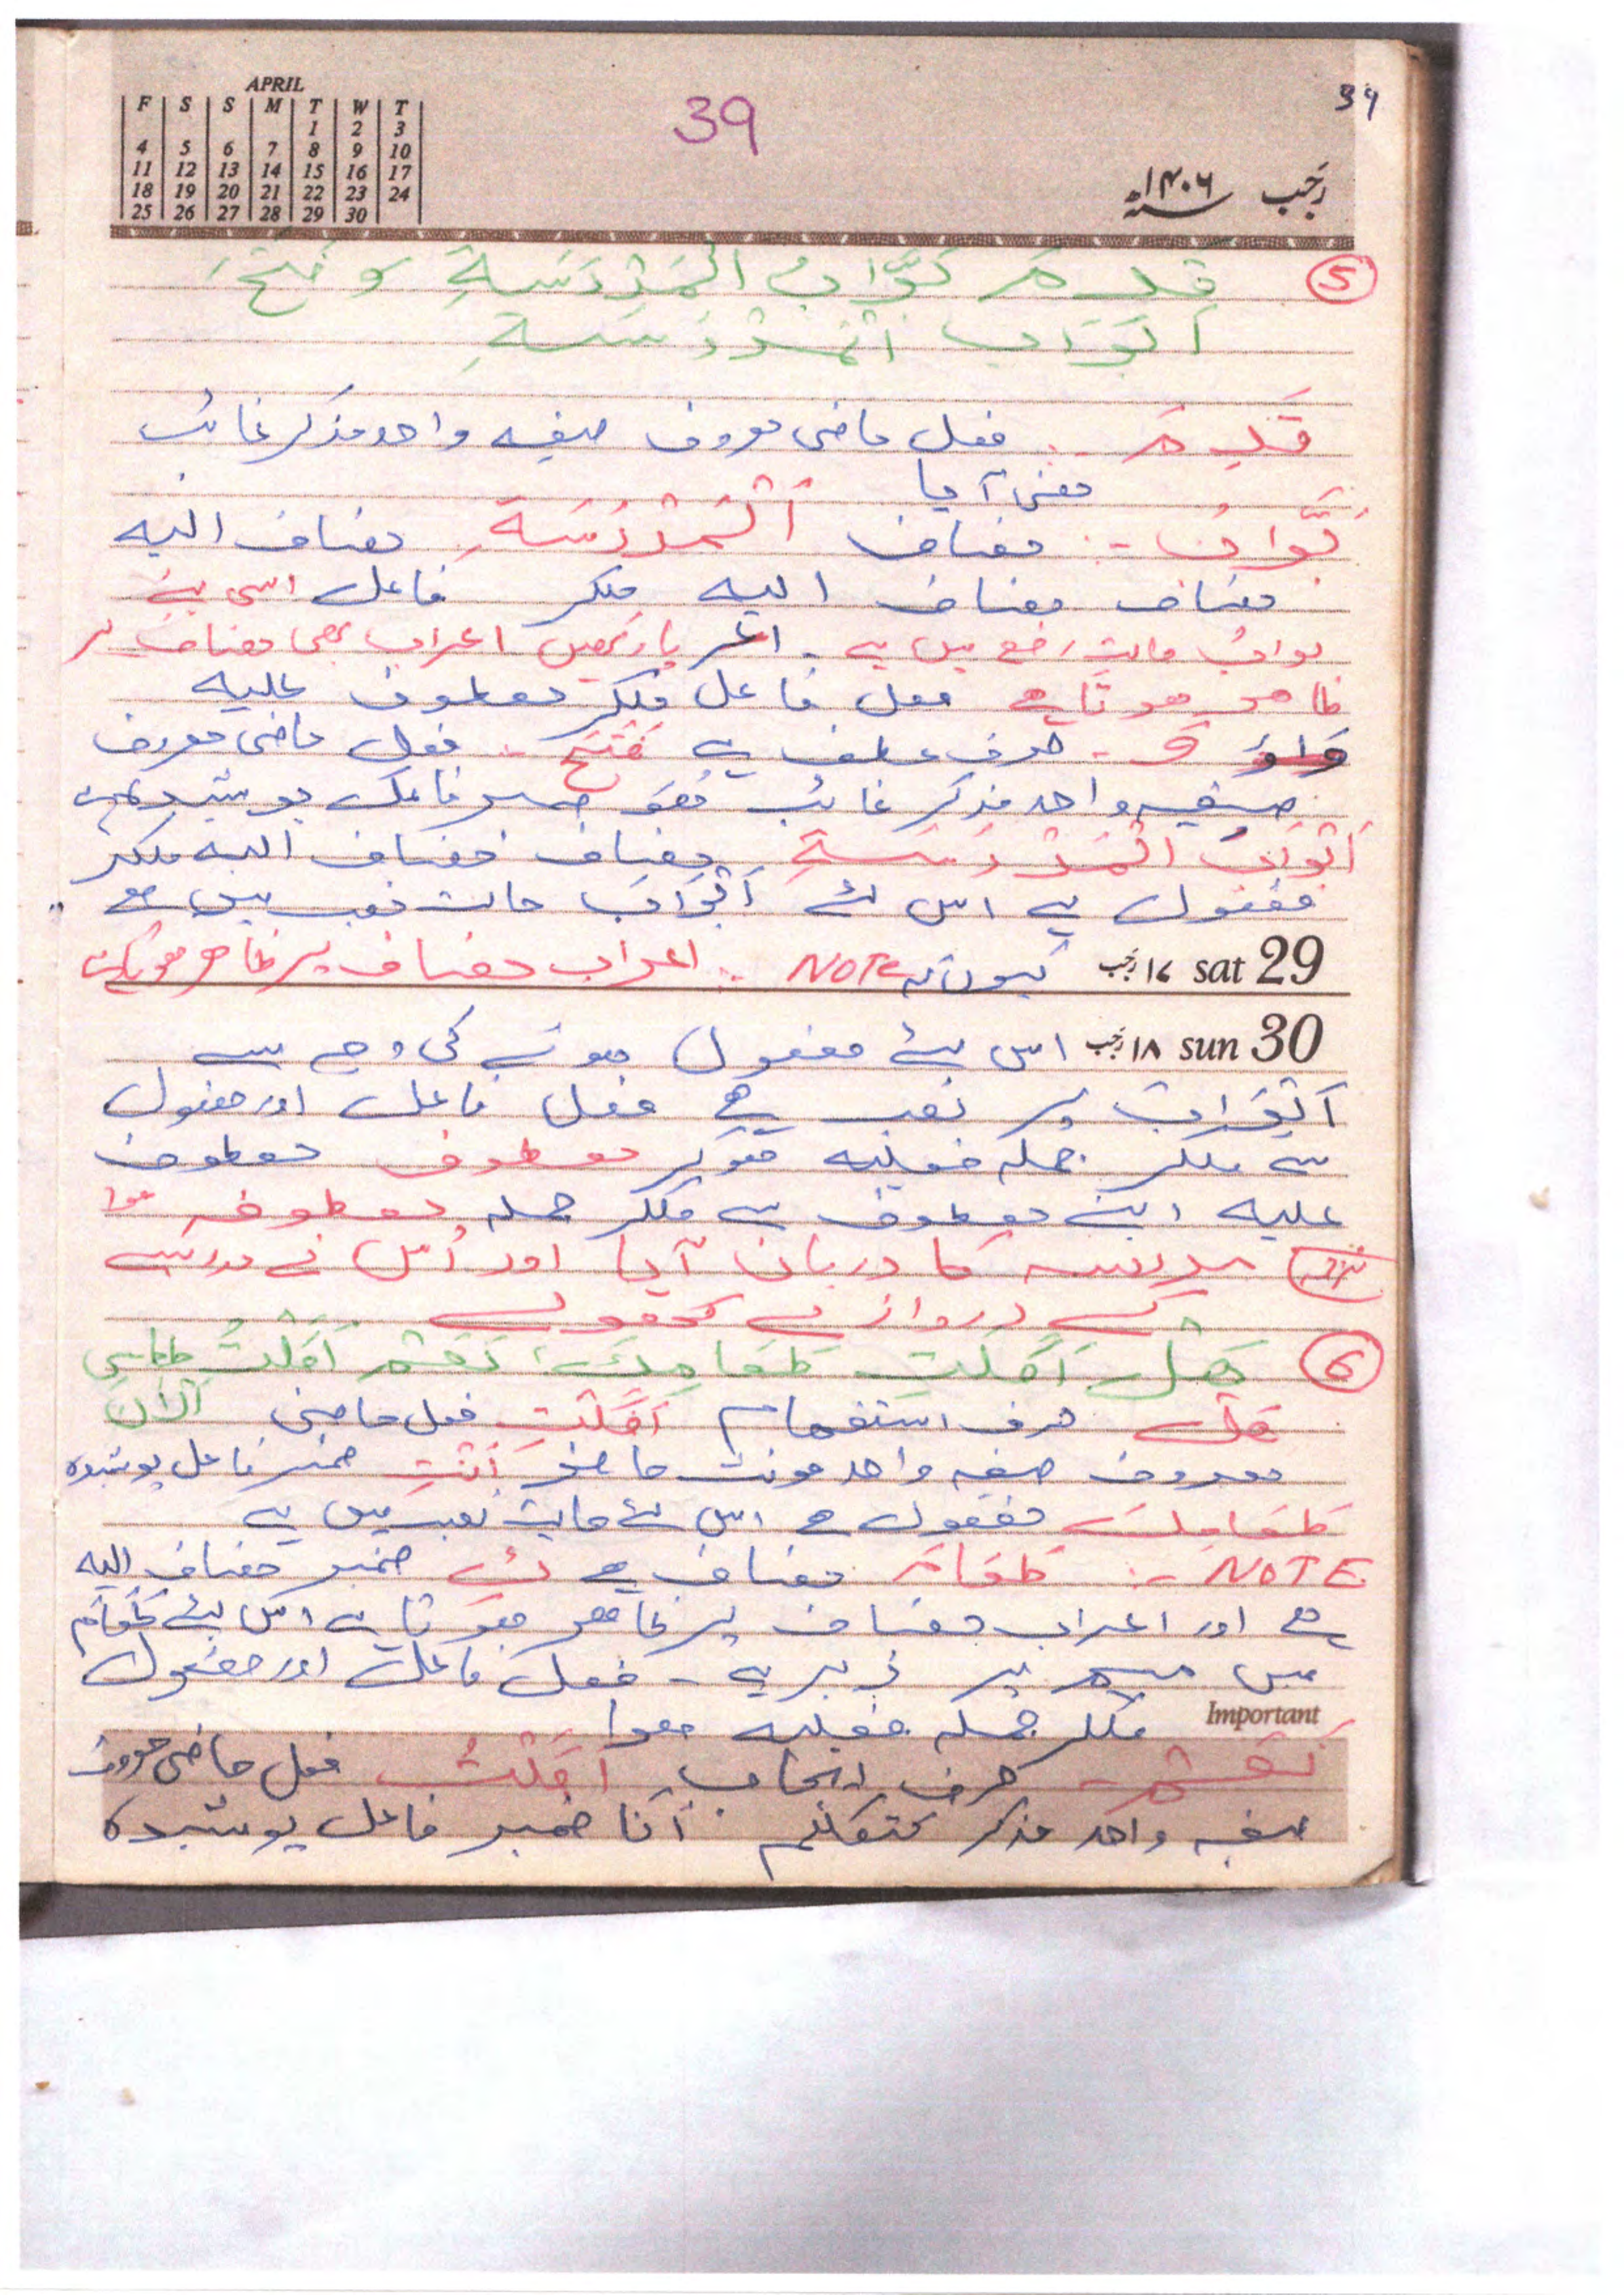 APRIL
F S S M T W T
1 2 3
4 5 6 7 8 9 10
11 12 13 14 15 16 17
18 19 20 21 22 23 24
25 26 27 28 29 30
39
39
رجب ۱۴۰۶
5 قَدِمَ بَوَّابُ الْمَدْرَسَةِ وَ فَتَحَ
اَبْوَابَ الْمَدْرَسَةِ
قَدِمَ :- فعل ماضی معروف صیغہ واحد مذکر غائب
معنی آیا
بَوَّابُ :- مضاف اَلْمَدْرَسَةِ مضاف الیہ
مضاف مضاف الیہ ملکر فاعل اسی لئے
بوابُ حالت رفع میں ہے - اگر یا رکھیں اعراب بھی مضاف پر
ظاہر ہوتا ہے فعل فاعل ملکر معطوف علیہ
وَ - حرف عطف ہے فَتَحَ :- فعل ماضی معروف
صیغہ واحد مذکر غائب ھُوَ ضمیر فاعل پوشیدہ ہے
اَبْوَابَ الْمَدْرَسَةِ مضاف مضاف الیہ ملکر
مفعول ہے اس لئے اَبْوَابَ حالت نصب میں ہے
29 sat ۱۷ رجب کیوں کہ NOTE :- اعراب مضاف پر ظاہر ہوتا ہے
30 sun ۱۸ رجب اس لئے مفعول ہونے کی وجہ سے
اَبْوَابَ پر نصب ہے فعل فاعل اور مفعول
سے ملکر جملہ فعلیہ ہوکر معطوف معطوف
علیہ اپنے معطوف سے ملکر جملہ معطوفہ ہوا
ترجمہ مدرسہ کا دربان آیا اور اُس نے مدرسے
کے دروازے کھولے
6 هَلْ اَكَلْتِ طَعَامَكِ، نَعَمْ اَكَلْتُ طَعَامِي
اَلْآنَ
هَلْ حرف استفہام اَكَلْتِ فعل ماضی
معروف صیغہ واحد مونث حاضر اَنْتِ ضمیر فاعل پوشیدہ
طَعَامَكِ مفعول ہے اس لئے حالت نصب میں ہے
NOTE :- طَعَامَ مضاف ہے كِ ضمیر مضاف الیہ
ہے اور اعراب مضاف پر ظاہر ہوتا ہے اس لئے طَعَامَ
میں میم پر زبر ہے - فعل فاعل اور مفعول
Important ملکر جملہ فعلیہ ہوا
نَعَمْ :- حرف ایجاب اَكَلْتُ فعل ماضی معروف
صیغہ واحد مذکر متکلم اَنَا ضمیر فاعل پوشیدہ